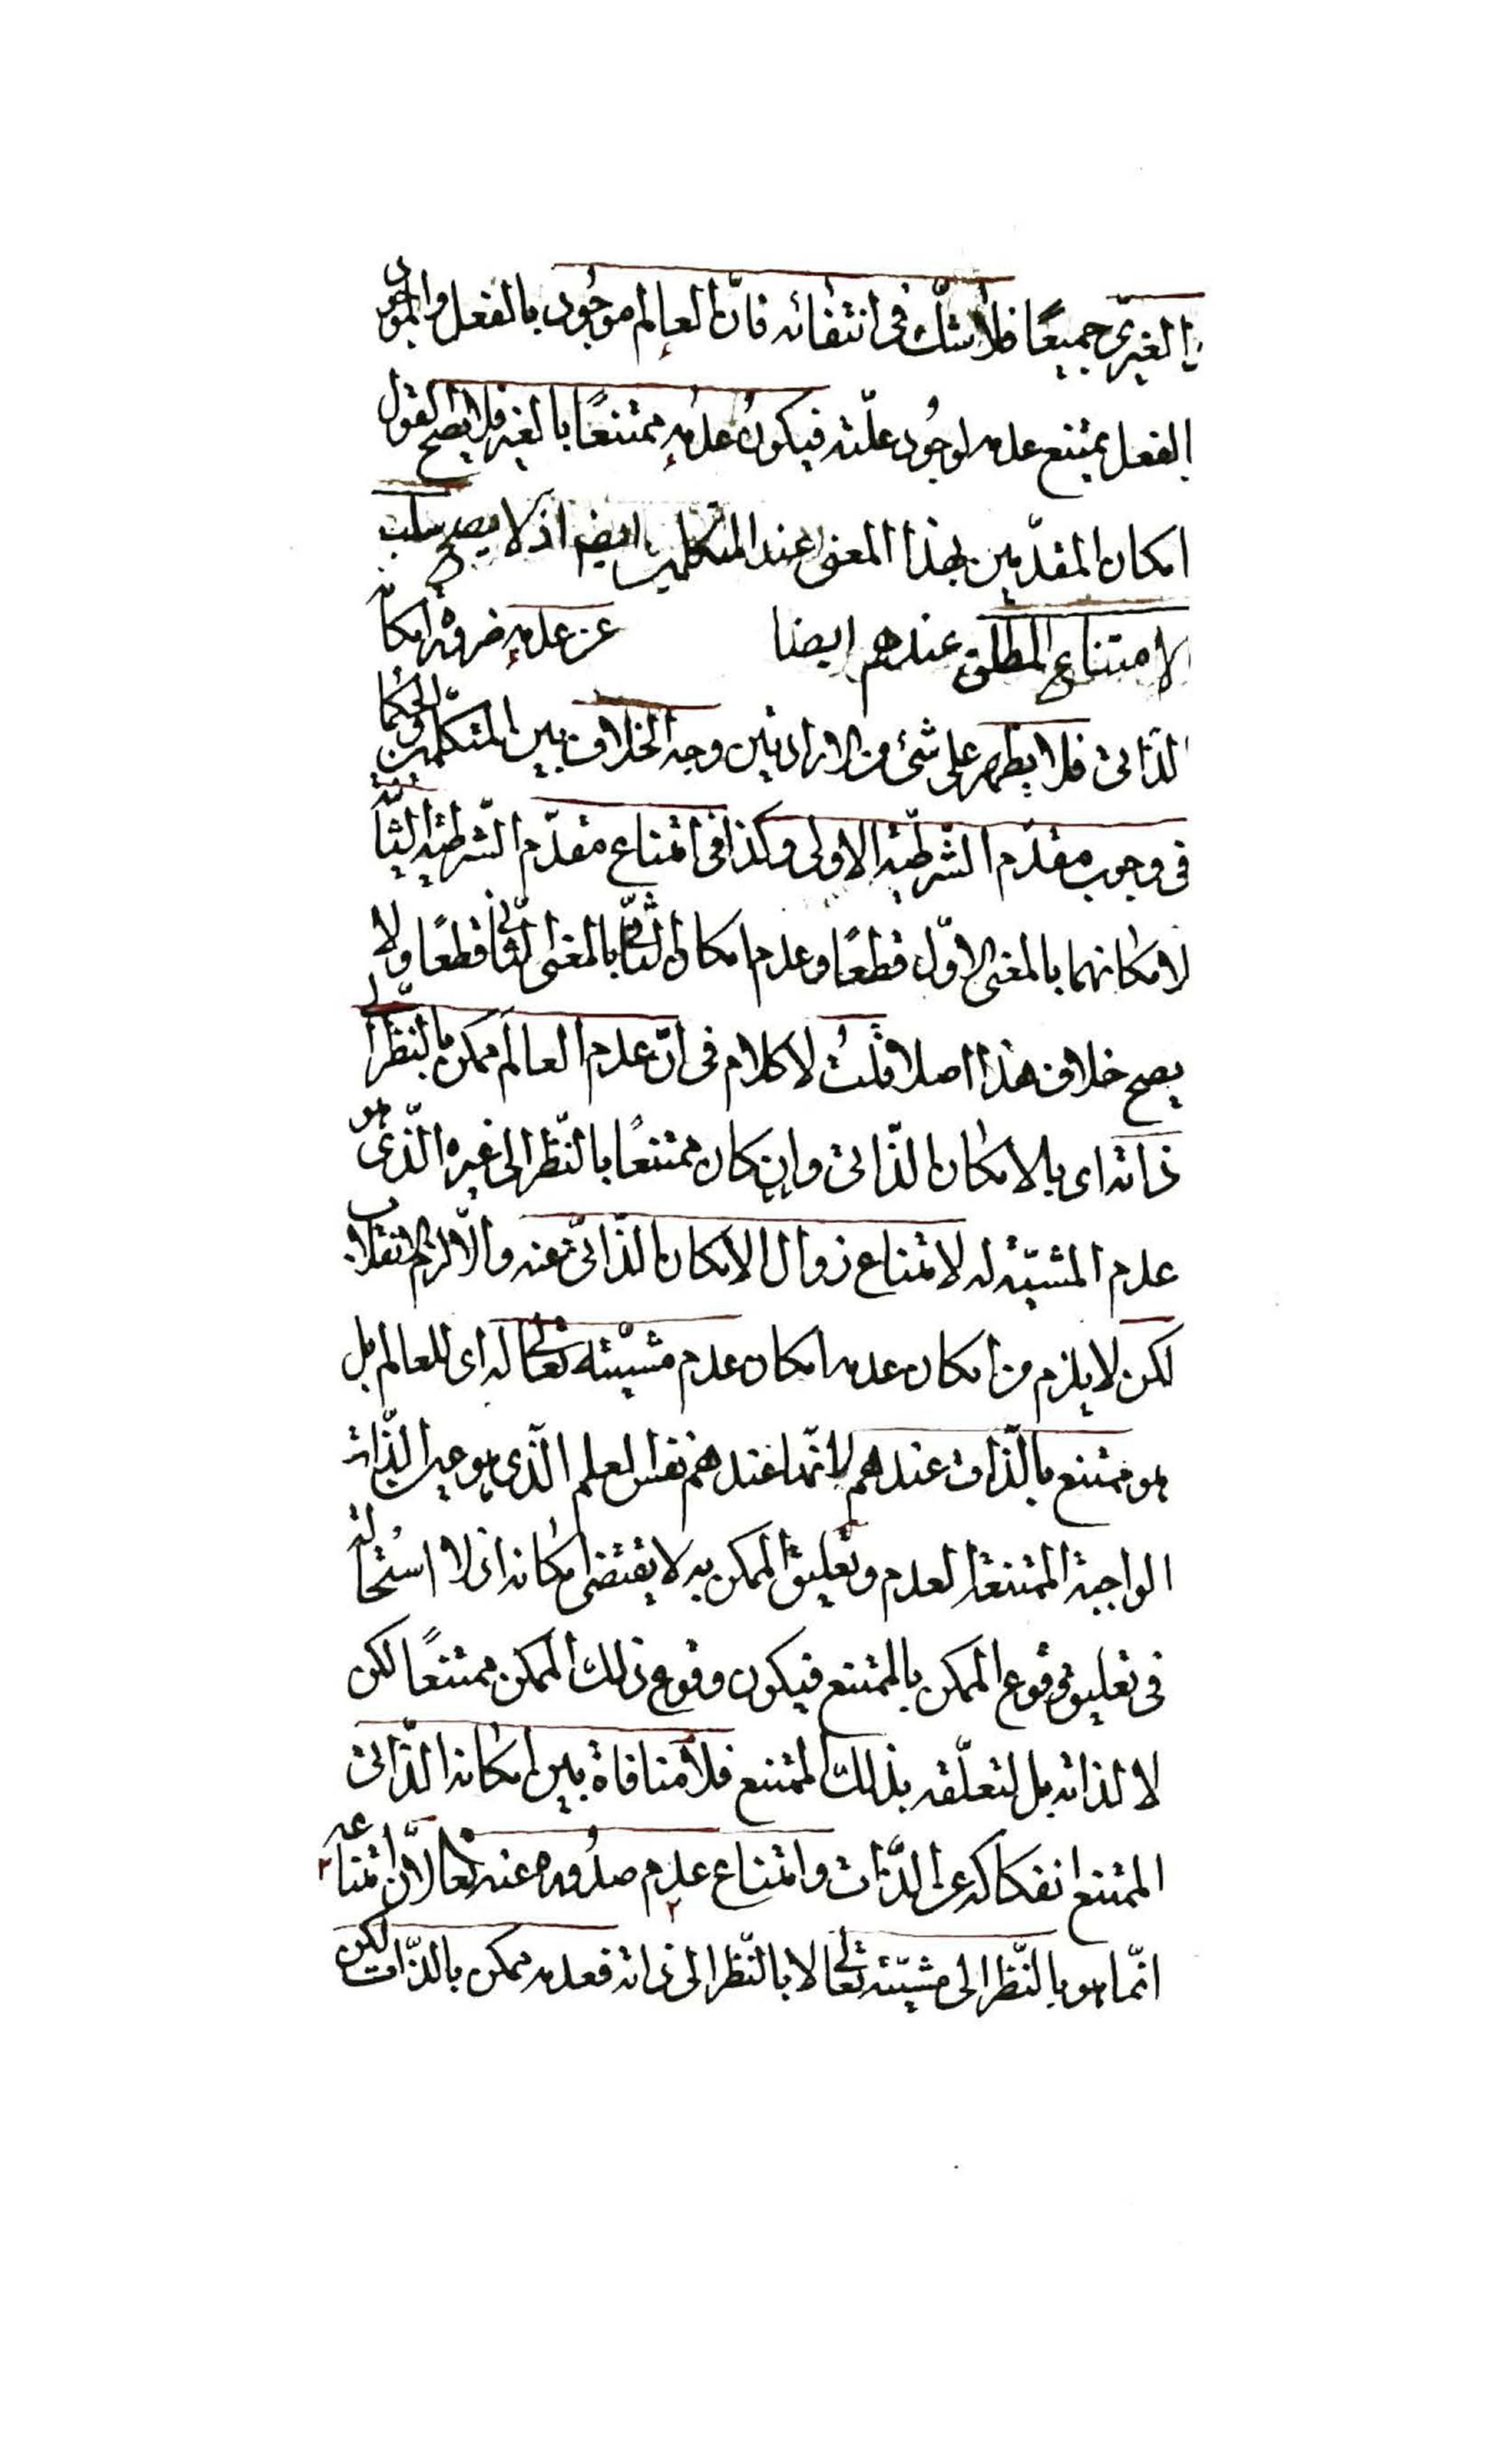 بالغيرى جميعًا فلا شك فى انتفائه فانّ العالم موجُود بالفعل والموجود
بالفعل يمتنع عدمه لوجُود علّته فيكونُ عدمه ممتنعًا بالغير فلا يصح القول
بامكان المقدّمين بهذا المعنى عند المتكلمين ايضا اذ لا يصح سلب
الامتناع المطلق عندهم ايضا عن عدمه ضرورة امكانه
الذّاتى فلا يظهر على شئ من الارادتين وجه الخلاف بين المتكلمين والحكما
فى وجوب مقدّم الشّرطيّة الاولى وكذا فى امتناع مقدّم الشّرطية الثّانية
لامكانهما بالمعنى الاوّل قطعًا وعدم امكان الثّانى بالمعنى الثّانى قطعًا ولا
يصح خلاف هذا اصلا قلتُ لا كلام فى انّ عدم العالم ممكن بالنّظر الى
ذاته اى بالامكان الذّاتى وان كان ممتنعًا بالنّظر الى غيره الّذى هو
عدم المشيّة له لامتناع زوال الامكان الذّاتىّ عنه والّا لزم الانقلاب
لكن لا يلزم من امكان عدمه امكان عدم مشيّته تعالى له اى للعالم بل
هو ممتنع بالذّات عندهم لانّها عندهم نفس العلم الّذى هو عين الذّات
الواجبة الممتنعة العدم وتعليق الممكن به لا يقتضى امكانه اذ لا استحالة
فى تعليق وقوع الممكن بالممتنع فيكون وقوع ذلك الممكن ممتنعًا لكن
لا لذاته بل لتعلّقه بذلك الممتنع فلا منافاة بين امكانه الذّاتى
الممتنع انفكاكه عن الذّات وامتناع عدم صدُوره عنه تعالى لانّ امتناعه
انّما هو بالنّظر الى مشيّته تعالى لا بالنّظر الى ذاته فعدمه ممكن بالذّات لكن